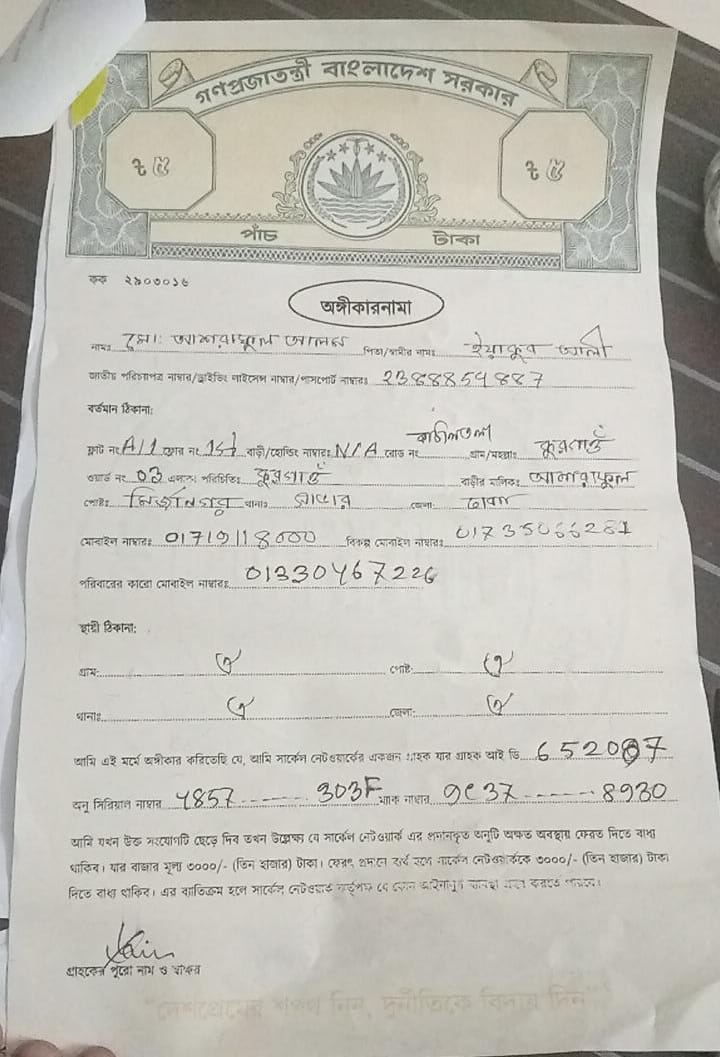 গণপ্রজাতন্ত্রী বাংলাদেশ সরকার
৳ ৫ ৳ ৫
পাঁচ টাকা
কক ২৯০৩০১৬
অঙ্গীকারনামা
নামঃ মো: আশরাফুল আলম পিতা/স্বামীর নামঃ ইয়াকুব আলী
জাতীয় পরিচয়পত্র নাম্বার/ড্রাইভিং লাইসেন্স নাম্বার/পাসপোর্ট নাম্বারঃ 2388854887
বর্তমান ঠিকানা:
ফ্লাট নং A/1 ফ্লোর নং 1st বাড়ী/হোল্ডিং নাম্বারঃ N/A রোড নং কাঠালতলা গ্রাম/মহল্লাঃ কুরগাওঁ
ওয়ার্ড নং 03 এলাকা পরিচিতিঃ কুরগাওঁ বাড়ীর মালিকঃ আশরাফুল
পোষ্টঃ মির্জানগর থানাঃ সাভার জেলা: ঢাকা
মোবাইল নাম্বারঃ 01719118000 বিকল্প মোবাইল নাম্বারঃ 01735066281
পরিবারের কারো মোবাইল নাম্বারঃ 01330467226
স্থায়ী ঠিকানা:
গ্রাম: ঐ পোষ্ট: ঐ
থানাঃ ঐ জেলা: ঐ
আমি এই মর্মে অঙ্গীকার করিতেছি যে, আমি সার্কেল নেটওয়ার্কের একজন গ্রাহক যার গ্রাহক আই ডি 652087
অনু সিরিয়াল নাম্বার 4857------303F ম্যাক নাম্বার 9C37------8930
আমি যখন উক্ত সংযোগটি ছেড়ে দিব তখন উল্লেক্ষ্য যে সার্কেল নেটওয়ার্ক এর প্রদানকৃত অনুটি অক্ষত অবস্থায় ফেরত দিতে বাধ্য
থাকিব। যার বাজার মূল্য ৩০০০/- (তিন হাজার) টাকা। ফেরৎ প্রদানে ব্যর্থ হলে সার্কেল নেটওয়ার্ককে ৩০০০/- (তিন হাজার) টাকা
দিতে বাধ্য থাকিব। এর ব্যতিক্রম হলে সার্কেল নেটওয়ার্ক কর্তৃপক্ষ যে কোন আইনানুগ ব্যবস্থা গ্রহণ করতে পারবে।
গ্রাহকের পুরো নাম ও স্বাক্ষর
"দেশপ্রেমের শপথ নিন, দুর্নীতিকে বিদায় দিন"